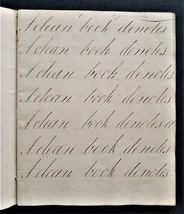 A clean book denotes
A clean book denotes
A clean book denotes
A clean book denotes
A clean book denotes a
A clean book denotes
A clean book denotes